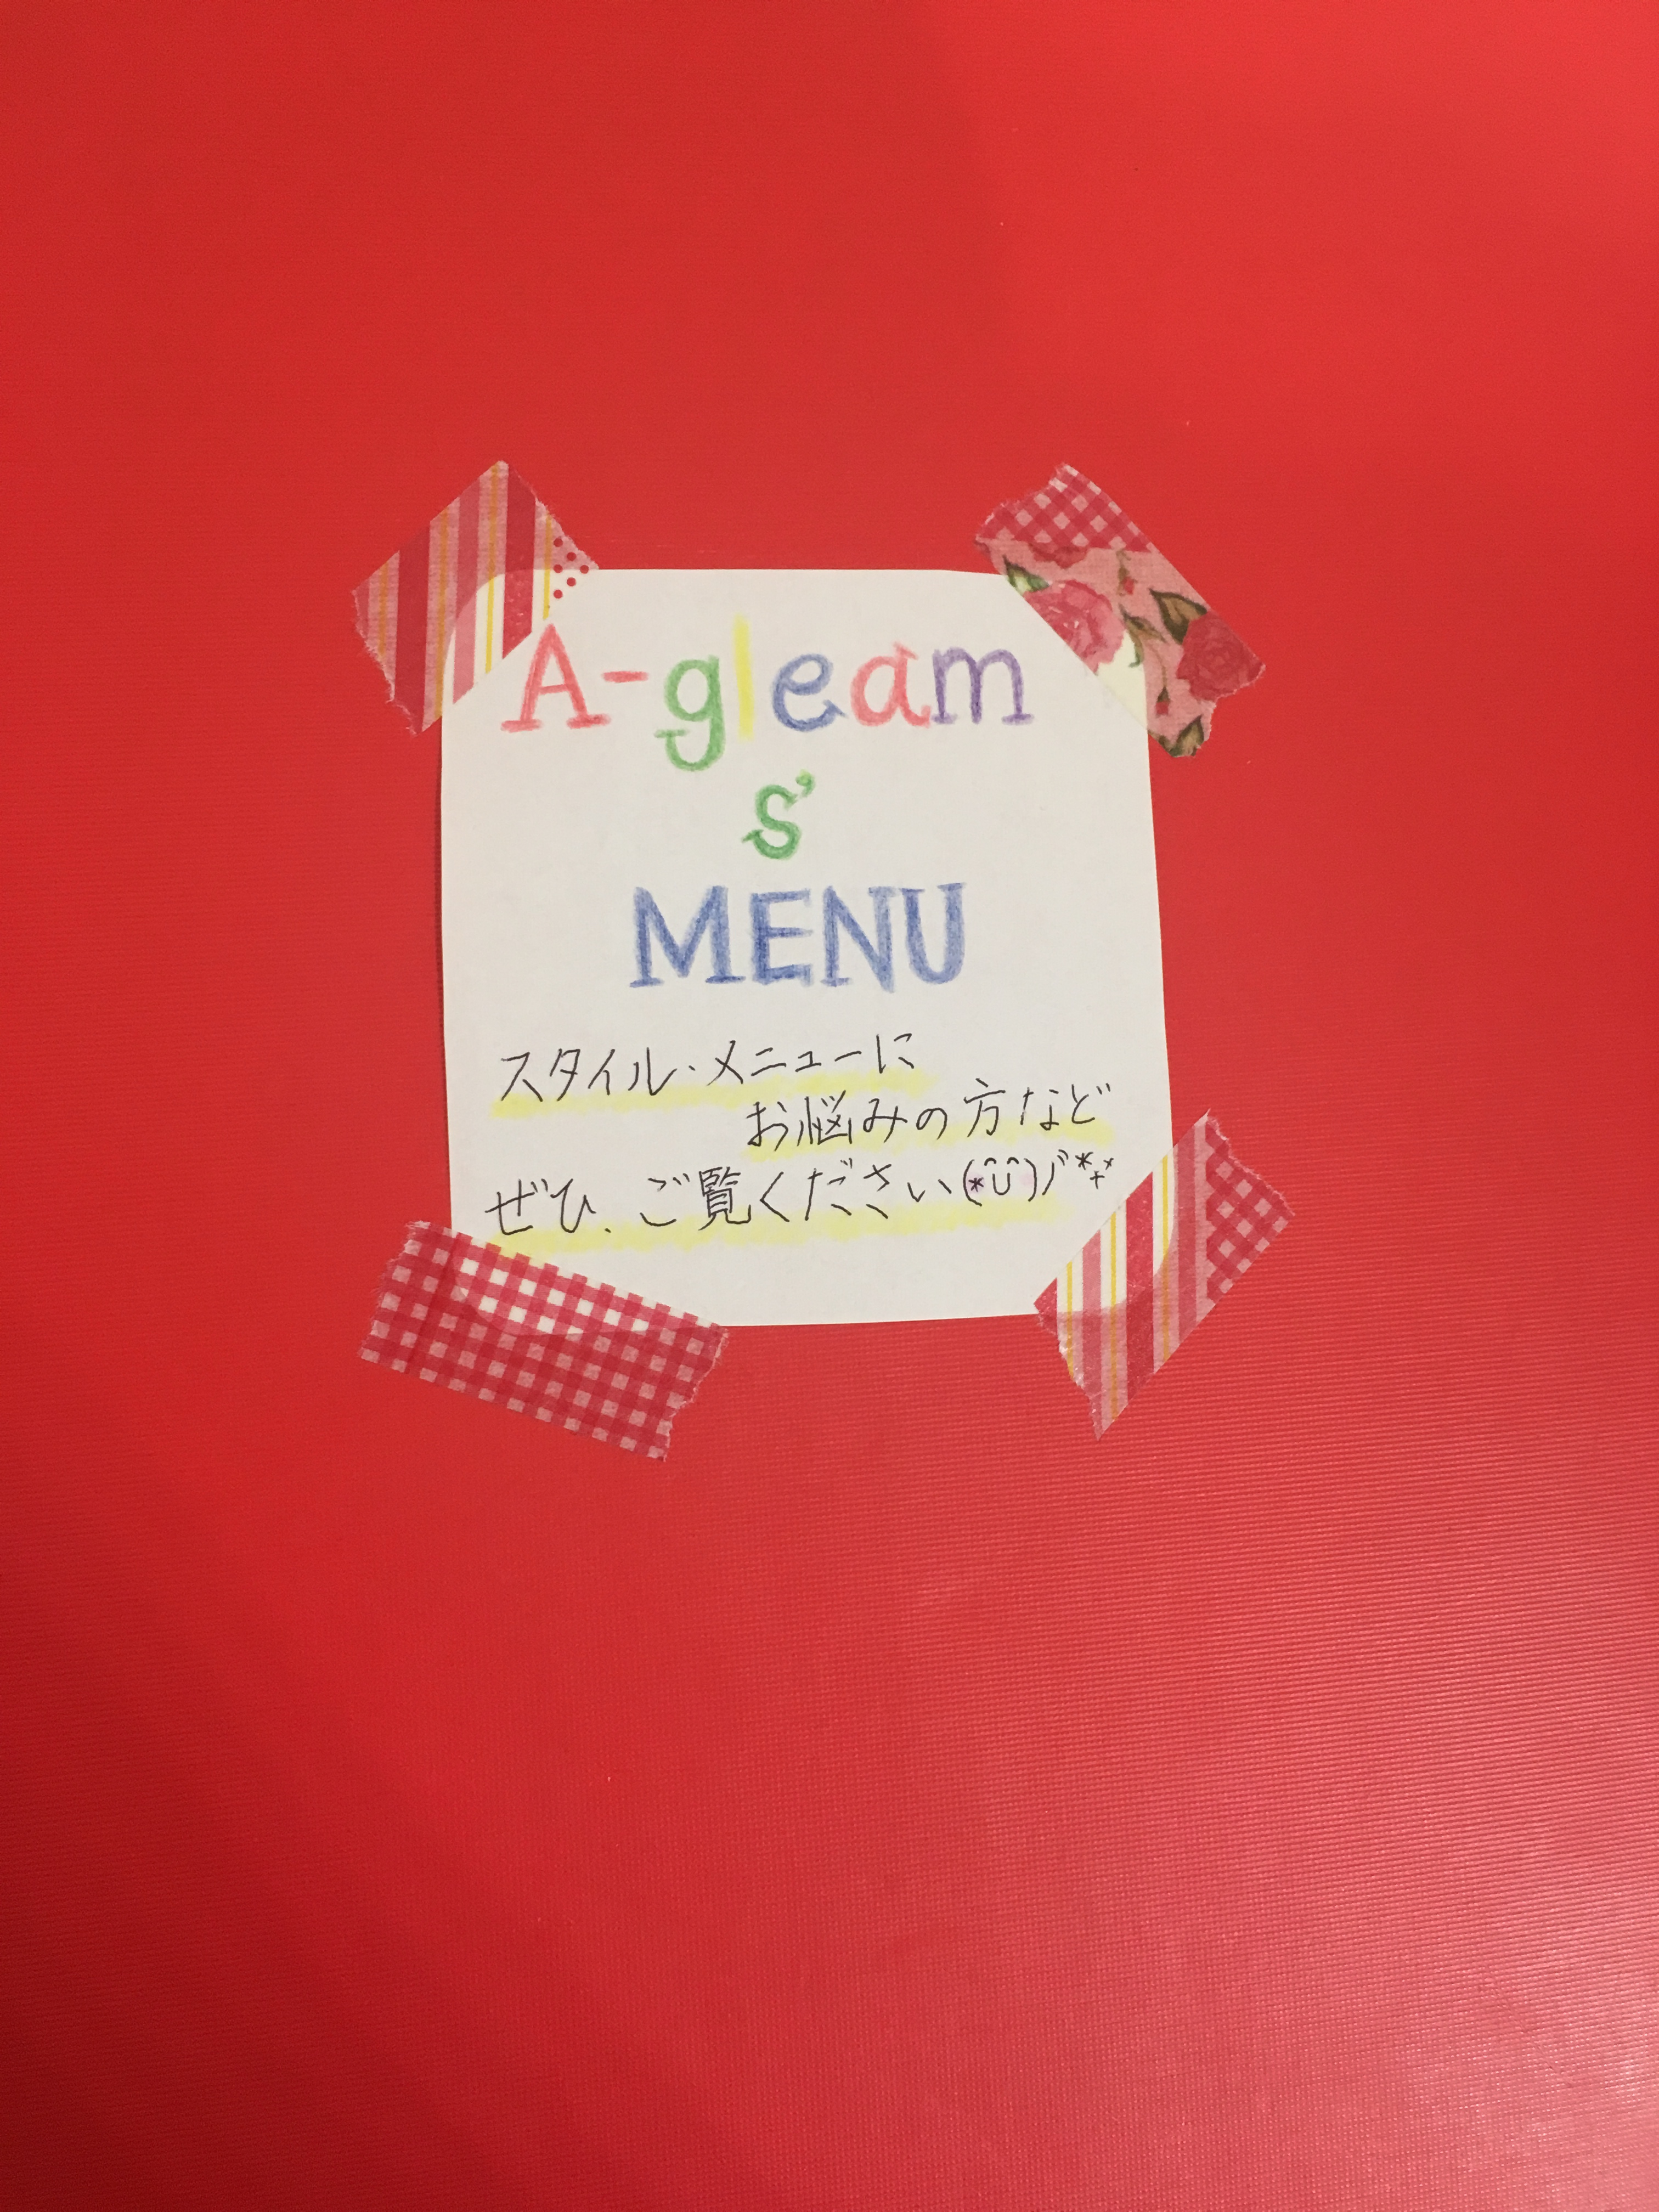 A-gleam
s'
MENU
スタイル・メニューに
お悩みの方など
ぜひ、ご覧ください(*ᵔᵕᵔ)ﾉﾞ*⁺ˣ